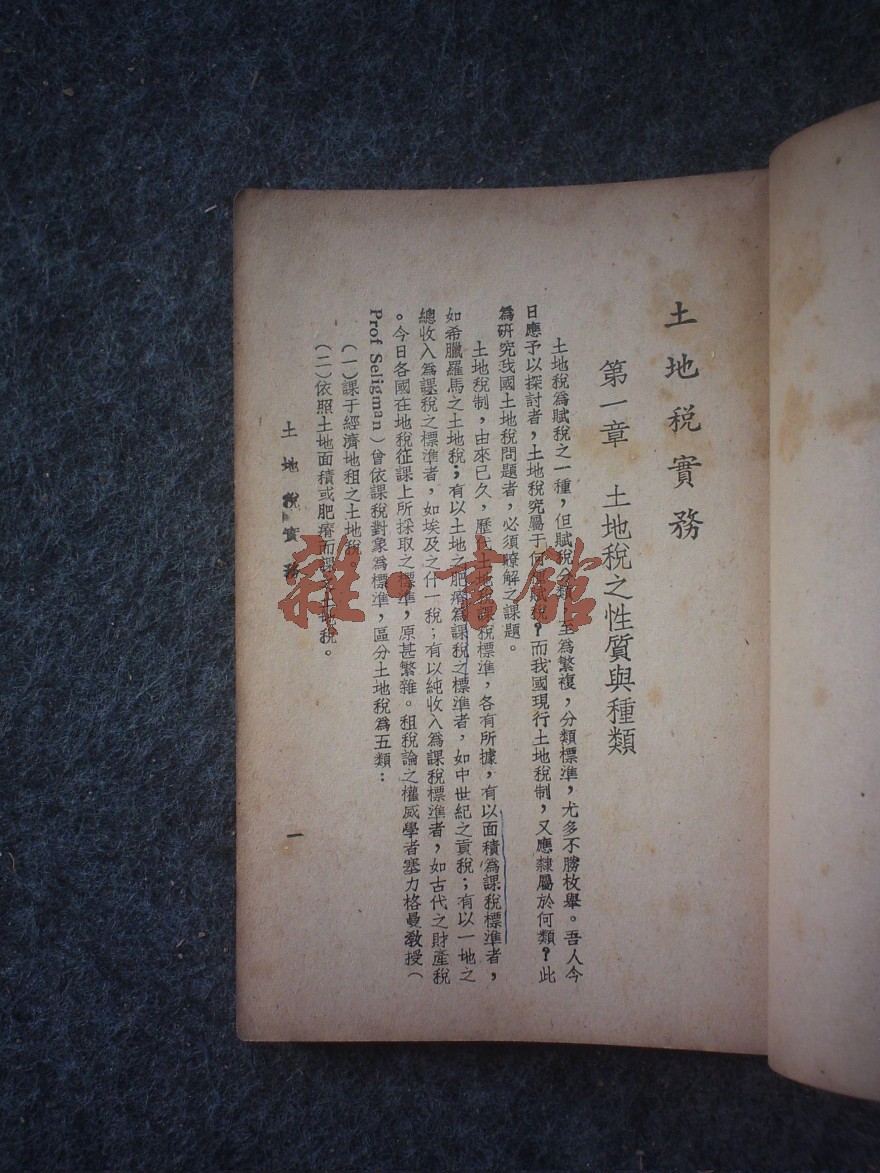 土地稅實務
第一章　土地稅之性質與種類
土地稅爲賦稅之一種，但賦稅分類，至爲繁複，分類標準，尤多不勝枚舉。吾人今
日應予以探討者，土地稅究屬于何種賦稅？而我國現行土地稅制，又應隸屬於何類？此
爲研究我國土地稅問題者，必須瞭解之課題。
土地稅制，由來已久，歷代土地稅課稅標準，各有所據，有以面積爲課稅標準者，
如希臘羅馬之土地稅；有以土地之肥瘠爲課稅之標準者，如中世紀之貢稅；有以一地之
總收入爲課稅之標準者，如埃及之什一稅；有以純收入爲課稅標準者，如古代之財產稅
。今日各國在地稅征課上所採取之標準，原甚繁雜。租稅論之權威學者塞力格曼敎授（
Prof Seligman）曾依課稅對象爲標準，區分土地稅爲五類：
（一）課于經濟地租之土地稅
（二）依照土地面積或肥瘠而課之土地稅。
土地稅實務
一
雜·書館